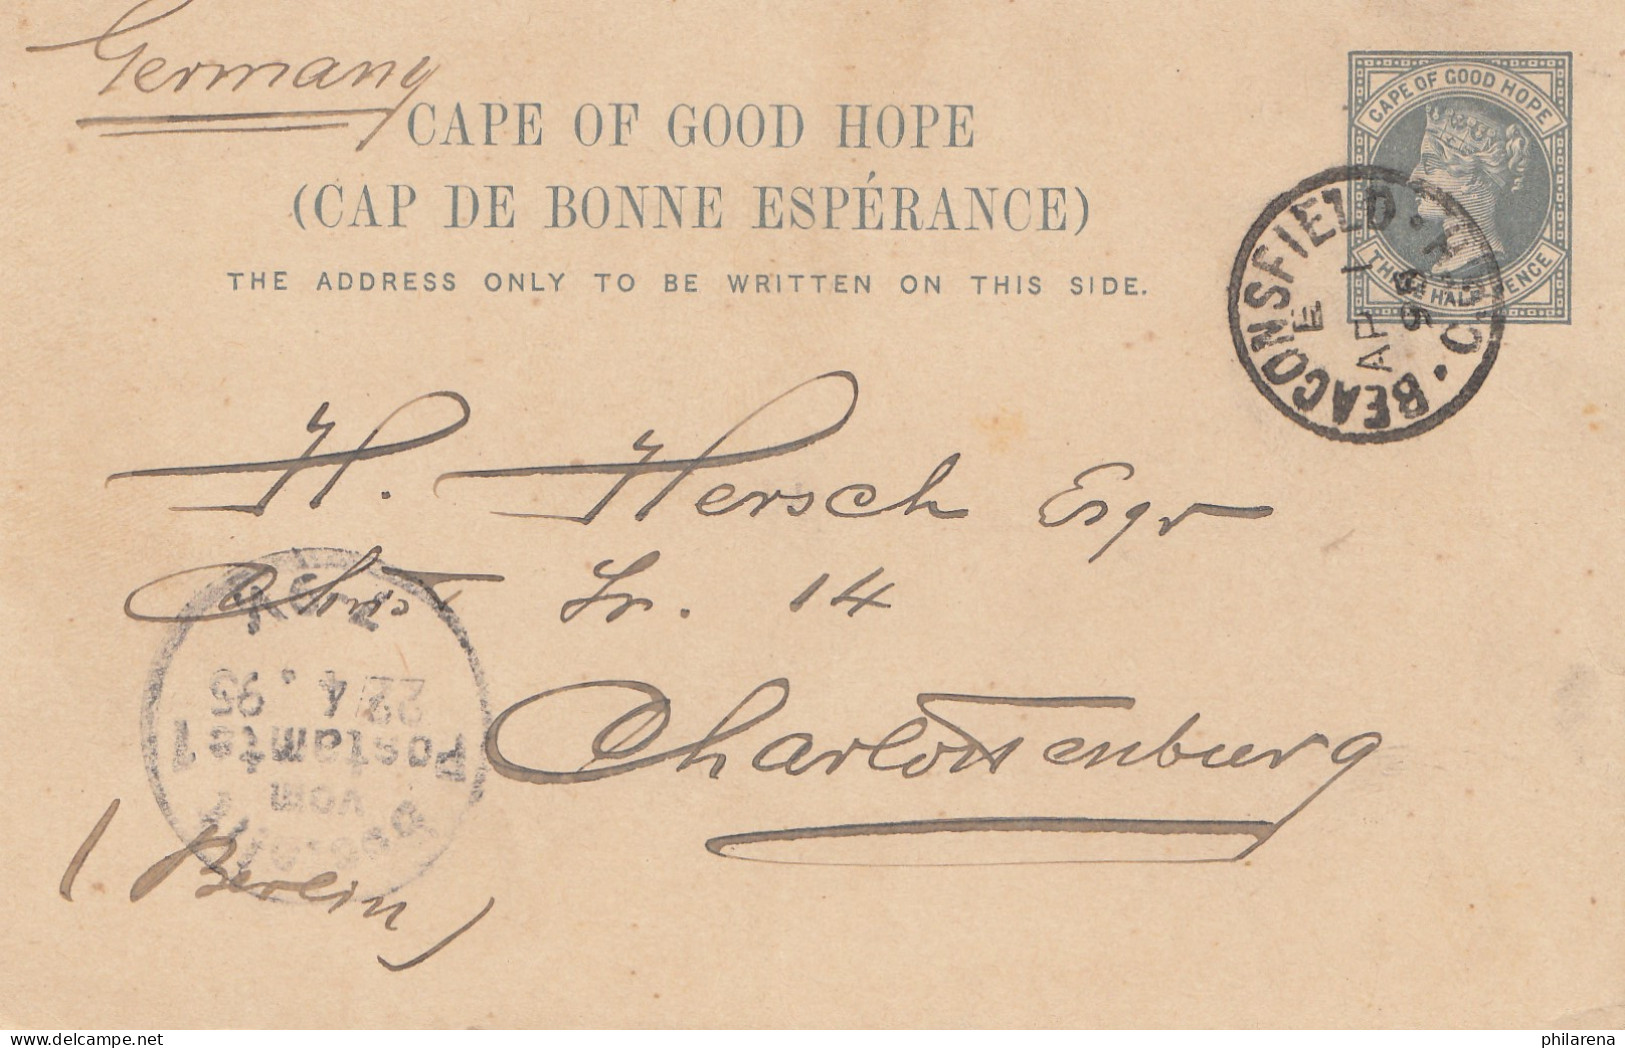 Germany
CAPE OF GOOD HOPE
(CAP DE BONNE ESPÉRANCE)
THE ADDRESS ONLY TO BE WRITTEN ON THIS SIDE.
CAPE OF GOOD HOPE
THREE HALF PENCE
BEACONSFIELD
E
AP 1
H. Hersch Esqr
Str. 14
Charlottenburg
(Berlin)
Bestellt
vom
Postamte 1
22/4.95